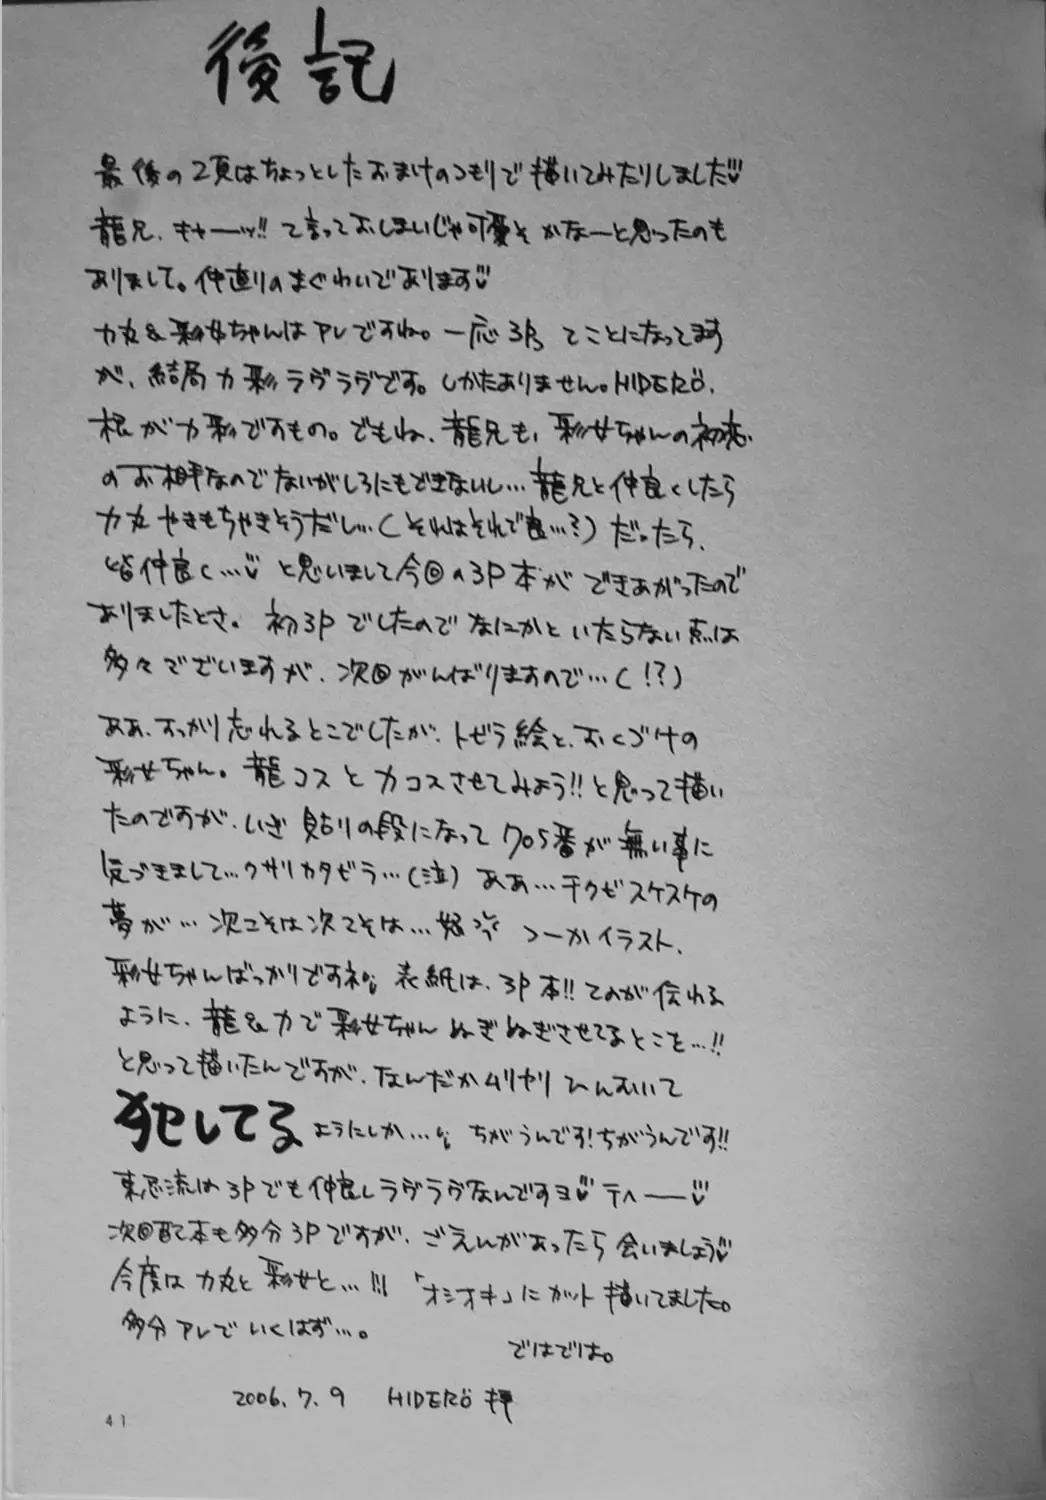 後記
最後の2頁はちょっとしたおまけのつもりで描いてみたりしました♡
龍兄、キャーッ!! て言っておしまいじゃ可愛そかなーと思ったのも
ありまして。仲直りのまぐわいであります♡
力丸&彩女ちゃんはアレですね。一応3P、てことになってます
が、結局力彩ラヴラヴです。しかたありません。HIDERÖ、
根が力彩ですもの。でもね、龍兄も、彩女ちゃんの初恋
のお相手なのでないがしろにもできないし…龍兄と仲良くしたら
力丸やきもちやきそうだし…(それはそれで良…?)だったら、
皆仲良く…♡と思いまして今回の3P本ができあがったので
ありましたとさ。初3Pでしたのでなにかといたらない点は
多々でございますが、次回がんばりますので…(!?)
ああ、すっかり忘れるとこでしたが、トビラ絵と、おくづけの
彩女ちゃん。龍コスと力コスさせてみよう!!と思って描い
たのですが、いざ貼りの段になって705番が無い事に
気づきまして…クサリカタビラ…(泣)ああ…チクビスケスケの
夢が…次こそは次こそは…怒 つーかイラスト、
彩女ちゃんばっかりですネ 表紙は、3P本!!てのが伝わる
ように、龍&力で彩女ちゃんぬぎぬぎさせてるとこを…!!
と思って描いたんですが、なんだかムリヤリひんむいて
犯してる ようにしか… ちがうんです!ちがうんです!!
東忍流は3Pでも仲良しラヴラヴなんですヨ♡ テヘー♡
次回配本も多分3Pですが、ごえんがあったら会いましょう♡
今度は力丸と彩女と…!!! 「オシオキ」にカット描いてました。
多分アレでいくはず…。
ではでは。
2006.7.9 HIDERÖ 拝
41